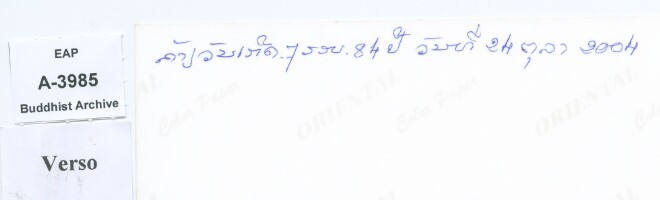 EAP
A-3985
Buddhist Archive
Verso
ຄ້າຽວັນເກີດ.7 ຮອບ.84 ປີ ວັນທີ 24 ຕຸລາ 2004
ORIENTAL
Color Paper